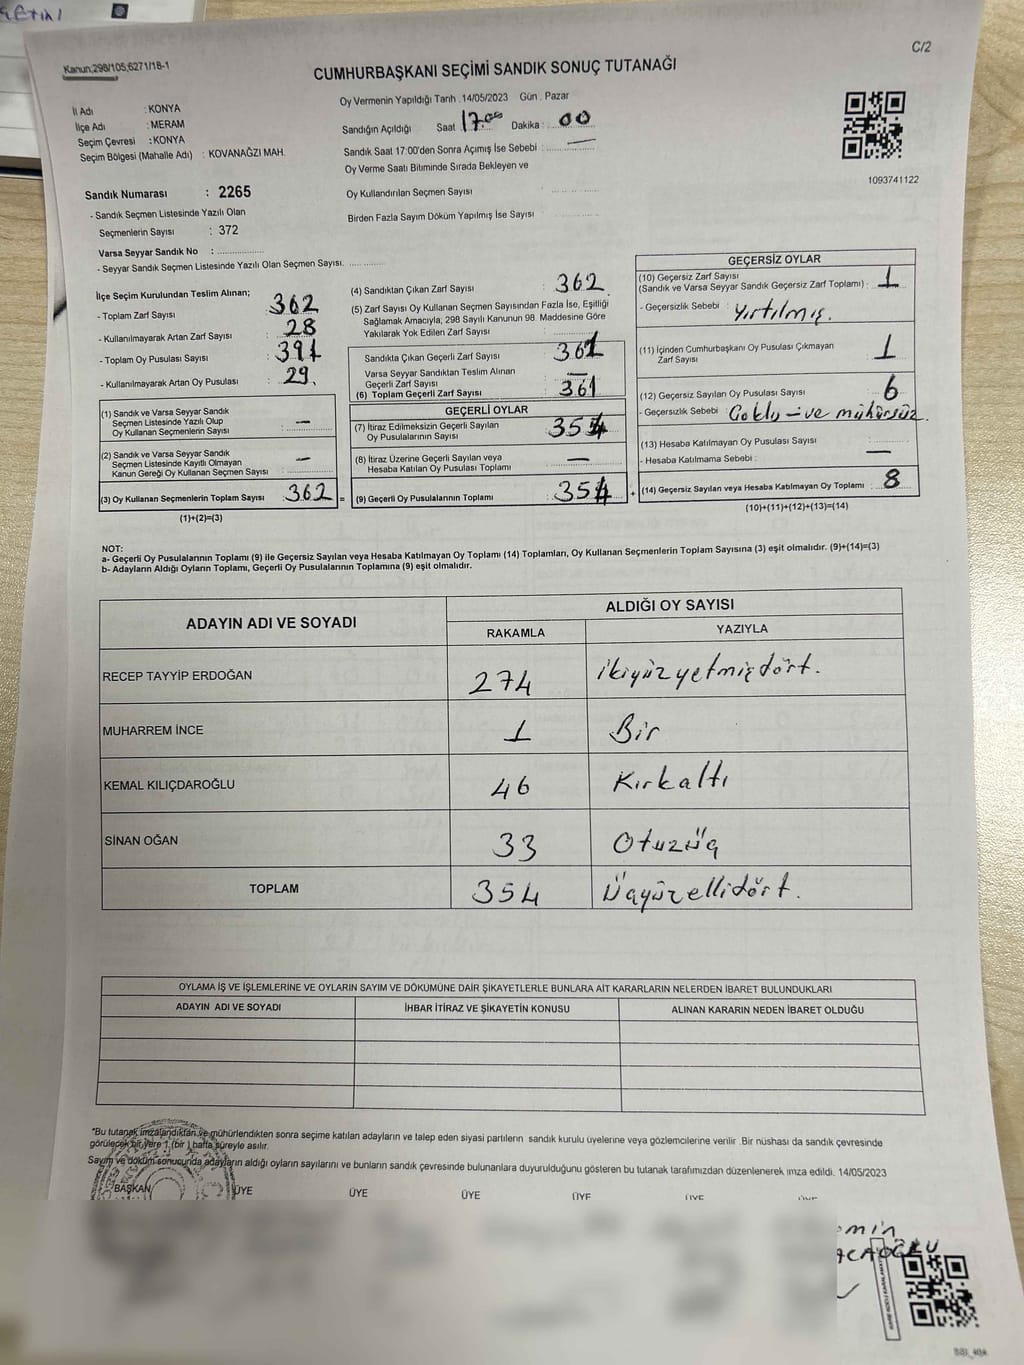 C/2
Kanun:298/105;6271/18-1
CUMHURBAŞKANI SEÇİMİ SANDIK SONUÇ TUTANAĞI
İl Adı : KONYA
İlçe Adı : MERAM
Seçim Çevresi : KONYA
Seçim Bölgesi (Mahalle Adı) : KOVANAĞZI MAH.
Sandık Numarası : 2265
- Sandık Seçmen Listesinde Yazılı Olan
Seçmenlerin Sayısı : 372
Varsa Seyyar Sandık No :
- Seyyar Sandık Seçmen Listesinde Yazılı Olan Seçmen Sayısı.
Oy Vermenin Yapıldığı Tarih .14/05/2023 Gün . Pazar
Sandığın Açıldığı Saat 17.00 Dakika : 00
Sandık Saat 17:00'den Sonra Açımış İse Sebebi : —
Oy Verme Saati Bitiminde Sırada Bekleyen ve
Oy Kullandırılan Seçmen Sayısı
Birden Fazla Sayım Döküm Yapılmış İse Sayısı
1093741122
İlçe Seçim Kurulundan Teslim Alınan;
- Toplam Zarf Sayısı : 362
- Kullanılmayarak Artan Zarf Sayısı : 28
- Toplam Oy Pusulası Sayısı : 391
- Kullanılmayarak Artan Oy Pusulası : 29.
(1) Sandık ve Varsa Seyyar Sandık
Seçmen Listesinde Yazılı Olup
Oy Kullanan Seçmenlerin Sayısı : —
(2) Sandık ve Varsa Seyyar Sandık
Seçmen Listesinde Kayıtlı Olmayan
Kanun Gereği Oy Kullanan Seçmen Sayısı : —
(3) Oy Kullanan Seçmenlerin Toplam Sayısı : 362 =
(1)+(2)=(3)
(4) Sandıktan Çıkan Zarf Sayısı : 362
(5) Zarf Sayısı Oy Kullanan Seçmen Sayısından Fazla İse, Eşitliği
Sağlamak Amacıyla, 298 Sayılı Kanunun 98 Maddesine Göre
Yakılarak Yok Edilen Zarf Sayısı :
Sandıkta Çıkan Geçerli Zarf Sayısı : 361
Varsa Seyyar Sandıktan Teslim Alınan
Geçerli Zarf Sayısı : —
(6) Toplam Geçerli Zarf Sayısı : 361
GEÇERLİ OYLAR
(7) İtiraz Edilmeksizin Geçerli Sayılan
Oy Pusulalarının Sayısı : 354
(8) İtiraz Üzerine Geçerli Sayılan veya
Hesaba Katılan Oy Pusulası Toplamı : —
(9) Geçerli Oy Pusulalarının Toplamı : 354 +
GEÇERSİZ OYLAR
(10) Geçersiz Zarf Sayısı
(Sandık ve Varsa Seyyar Sandık Geçersiz Zarf Toplamı) : 1
- Geçersizlik Sebebi : Yırtılmış.
(11) İçinden Cumhurbaşkanı Oy Pusulası Çıkmayan
Zarf Sayısı 1
(12) Geçersiz Sayılan Oy Pusulası Sayısı : 6
- Geçersizlik Sebebi : Çoklu - ve mühürsüz.
(13) Hesaba Katılmayan Oy Pusulası Sayısı :
- Hesaba Katılmama Sebebi : —
(14) Geçersiz Sayılan veya Hesaba Katılmayan Oy Toplamı : 8
(10)+(11)+(12)+(13)=(14)
NOT:
a- Geçerli Oy Pusulalarının Toplamı (9) ile Geçersiz Sayılan veya Hesaba Katılmayan Oy Toplamı (14) Toplamları, Oy Kullanan Seçmenlerin Toplam Sayısına (3) eşit olmalıdır. (9)+(14)=(3)
b- Adayların Aldığı Oyların Toplamı, Geçerli Oy Pusulalarının Toplamına (9) eşit olmalıdır.
ADAYIN ADI VE SOYADI
ALDIĞI OY SAYISI
RAKAMLA YAZIYLA
RECEP TAYYİP ERDOĞAN 274 İkiyüzyetmişdört.
MUHARREM İNCE 1 Bir
KEMAL KILIÇDAROĞLU 46 Kırkaltı
SİNAN OĞAN 33 Otuzüç
TOPLAM 354 Üçyüzellidört.
OYLAMA İŞ VE İŞLEMLERİNE VE OYLARIN SAYIM VE DÖKÜMÜNE DAİR ŞİKAYETLERLE BUNLARA AİT KARARLARIN NELERDEN İBARET BULUNDUKLARI
ADAYIN ADI VE SOYADI İHBAR İTİRAZ VE ŞİKAYETİN KONUSU ALINAN KARARIN NEDEN İBARET OLDUĞU
*Bu tutanak imzalandıktan ve mühürlendikten sonra seçime katılan adayların ve talep eden siyasi partilerin sandık kurulu üyelerine veya gözlemcilerine verilir .Bir nüshası da sandık çevresinde
görülecek bir yere 1 (bir ) hafta süreyle asılır.
Sayım ve döküm sonucunda adayların aldığı oyların sayılarını ve bunların sandık çevresinde bulunanlara duyurulduğunu gösteren bu tutanak tarafımızdan düzenlenerek imza edildi. 14/05/2023
BAŞKAN ÜYE ÜYE ÜYE ÜYE ÜYE ÜYE